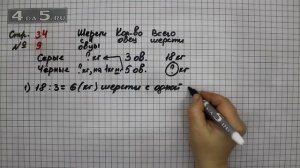 4DA5.RU
Стр. 34 Шерсти Кол-во Всего
№ 9 с одной овец шерсти
овцы
Серые ? кг 3 ов. 18 кг
Чёрные ? кг, на 1 кг 5 ов. ? кг
1) 18 : 3 = 6 (кг) шерсти с одной